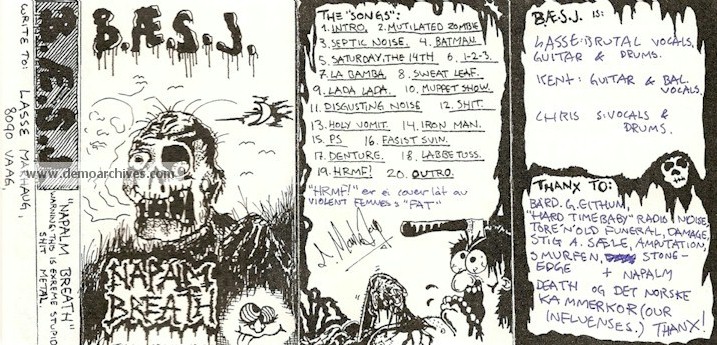 WRITE TO: LASSE MARHAUG,
8090 VAAG,
B.Æ.S.J
"NAPALM BREATH"
WARNING: THIS IS EXREME STUPID
SHIT METAL
B.Æ.S.J.
www.demoarchives.com
NAPALM
BREATH
THE "SONGS":
1. INTRO. 2. MUTILATED ZOMBIE
3. SEPTIC NOISE. 4. BATMAN.
5. SATURDAY, THE 14TH 6. 1-2-3.
7. LA BAMBA. 8. SWEAT LEAF.
9. LADA LADA. 10. MUPPET SHOW.
11. DISGUSTING NOISE 12. SHIT.
13. HOLY VOMIT. 14. IRON MAN.
15. PS 16. FASIST SVIN.
17. DENTURE. 18. LABBETUSS.
19. HRMF! 20. OUTRO.
"HRMF!" er ei cover låt av
VIOLENT FEMMES's "FAT"
B.Æ.S.J. is:
LASSE: BRUTAL VOCALS.
GUITAR & DRUMS.
KENT: GUITAR & BAL.
VOCALS.
CHRIS S: VOCALS &
DRUMS.
THANX TO:
BÅRD. G. EITHUN,
"HARD TIME BABY" RADIO, NOISE,
TORE'N'OLD FUNERAL, DAMAGE,
STIG A. SÆLE, AMPUTATION,
SMURFEN, STONE-
EDGE + NAPALM
DEATH OG DET NORSKE
KAMMERKOR (OUR
INFLUENSES.) THANX!